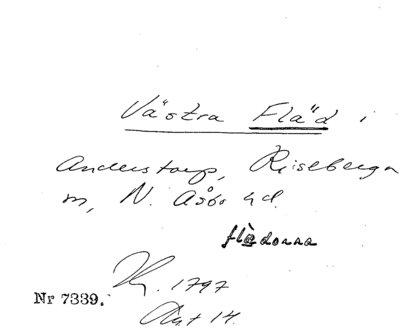 Västra Fläd i
Anderstorp, Riseberga
m, N. Åsbo hd.
flädorna
Kr. 1797
Akt 14.
Nr 7339.